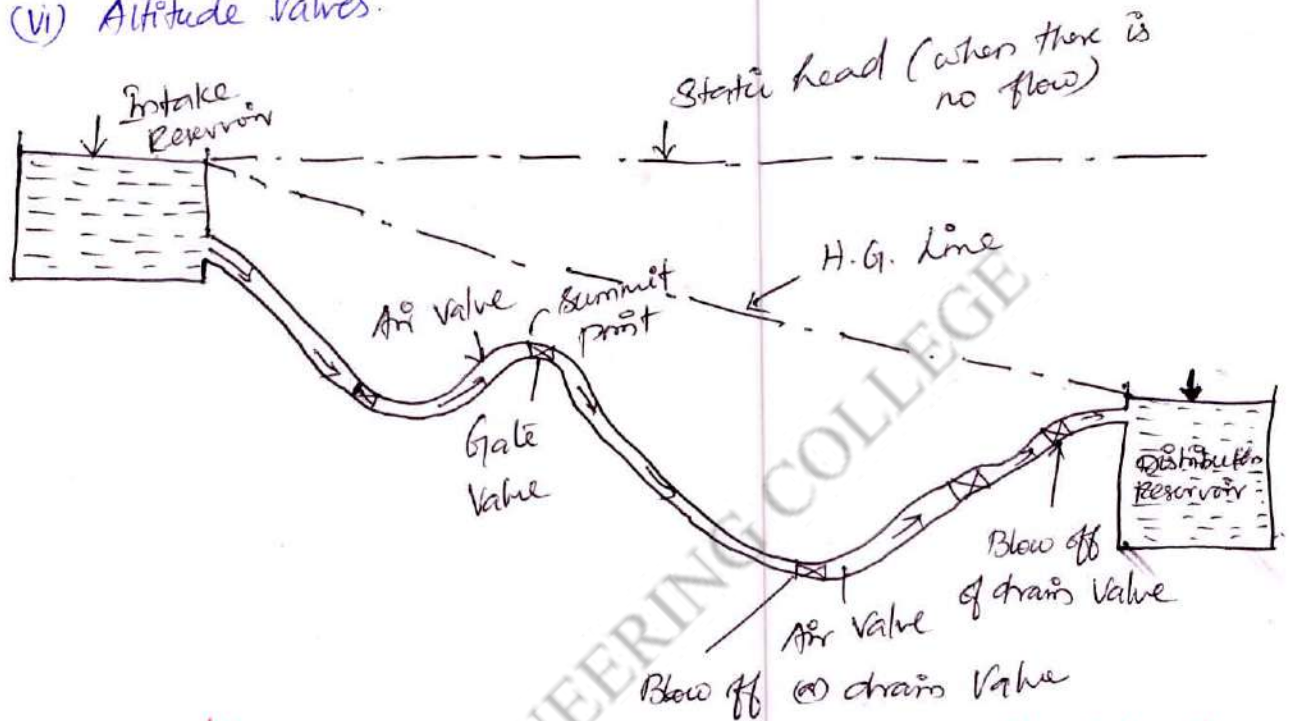 (Vi) Altitude Valves.
Intake
Reservoir
Static head (when there is
no flow)
H.G. Line
Air Valve
Summit
point
Gate
Valve
Distribution
Reservoir
Blow off
of drain Valve
Air Valve
Blow off (or) drain Valve
NEERING COLLEGE